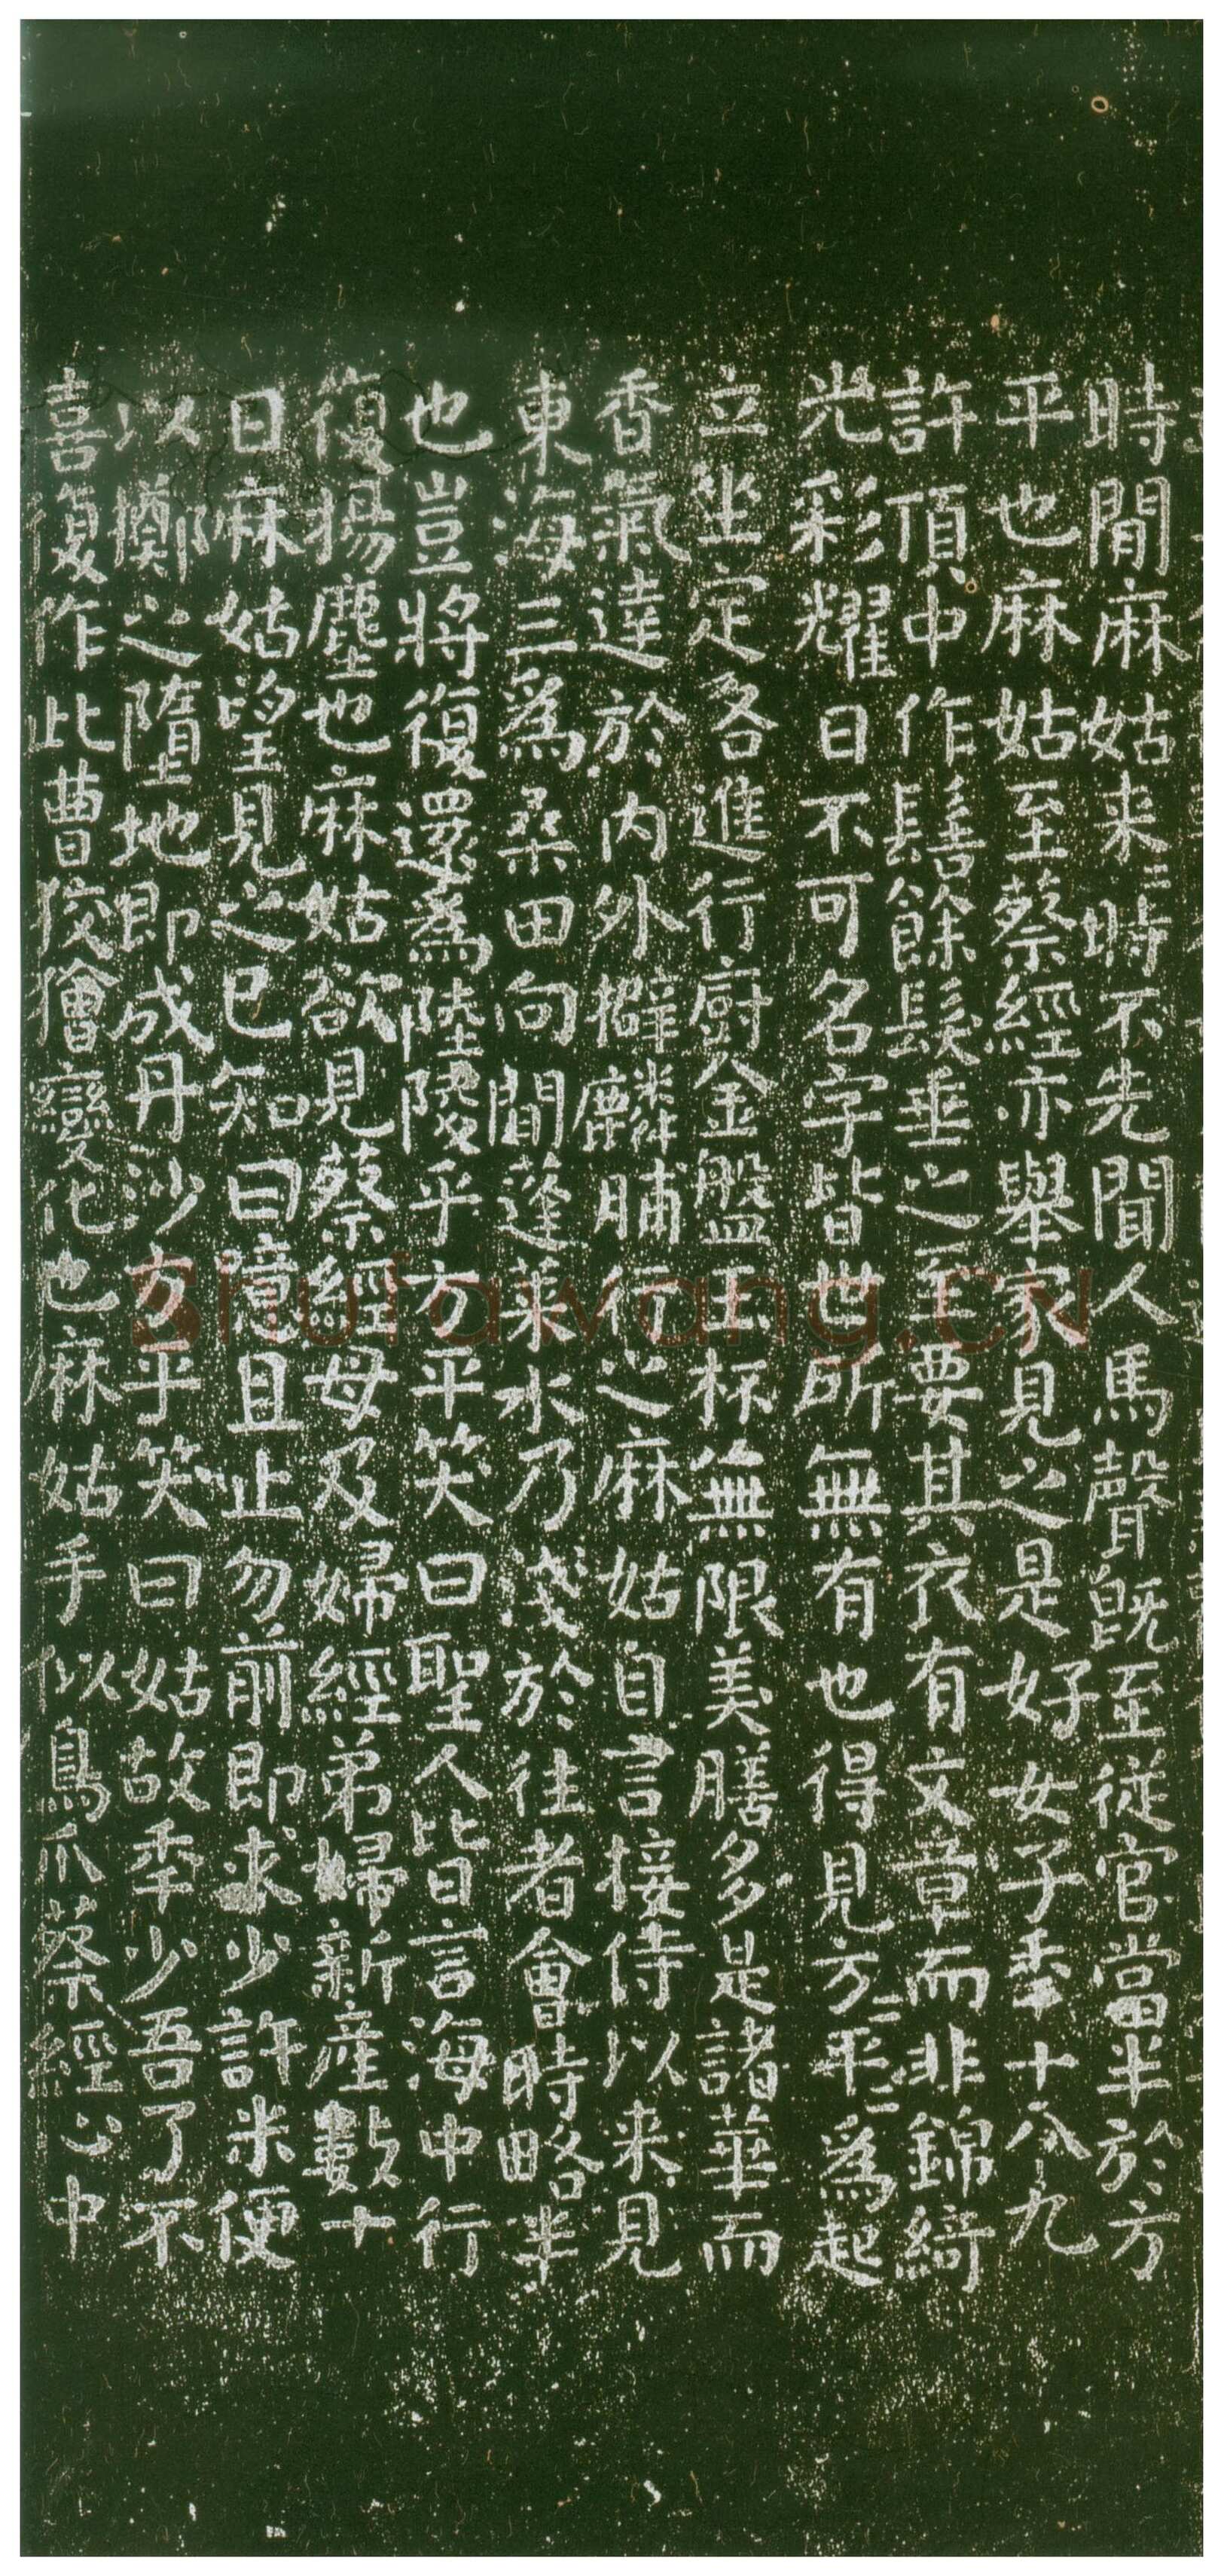 時間麻姑来=時不先聞人馬聲旣至從官當半於方
平也麻姑至蔡經亦舉家見之是好女子年十八九
許頂中作髻餘髮垂之至要其衣有文章而非錦綺
光彩耀日不可名字皆世所無有也得見方=平=爲起
立坐定各進行廚金盤玉杯無限美膳多是諸華而
香氣達於內外擗麟脯行之麻姑自言接侍以来見
東海三爲桑田向間蓬萊水乃淺於往者會時略半
也豈將復還爲陸陵乎方平笑曰聖人皆言海中行
復揚塵也麻姑欲見蔡經母及婦經弟婦新產數十
日麻姑望見之已知曰噫且止勿前即求少許米便
以擲之墮地即成丹沙方平笑曰姑故年少吾了不
喜復作此曹狡獪變化也麻姑手似鳥爪蔡經心中
Shufawang.CN